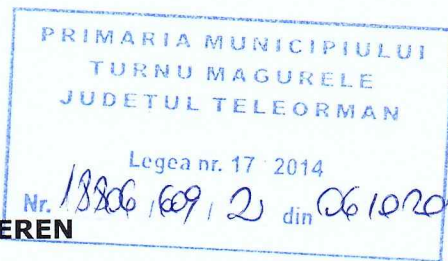 PRIMARIA MUNICIPIULUI
TURNU MAGURELE
JUDETUL TELEORMAN
Legea nr. 17 2014
Nr. 18806 / 609 / 2 din 06 10 20
EREN